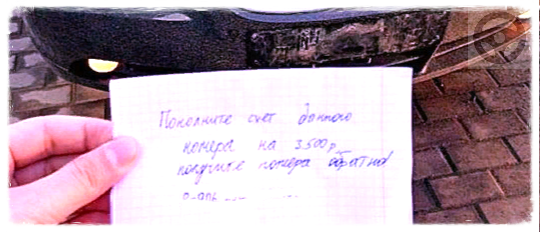 Пополните счет данного
номера на 3.500р
получите номера обратно!